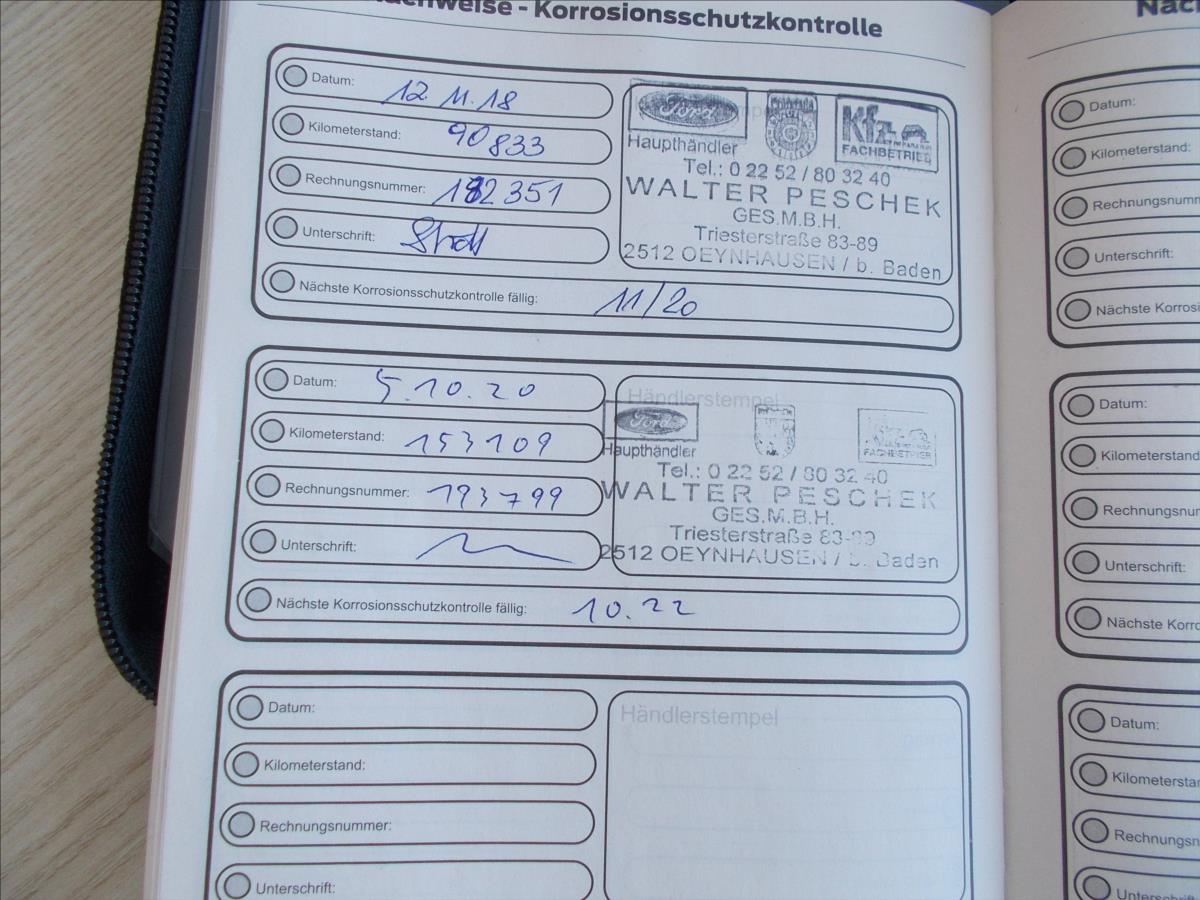 nachweise - Korrosionsschutzkontrolle
Datum: 12.11.18
Kilometerstand: 90833
Rechnungsnummer: 182351
Unterschrift:
Nächste Korrosionsschutzkontrolle fällig: 11/20
Ford
Haupthändler
Kfz
FACHBETRIEB
Tel.: 0 22 52 / 80 32 40
WALTER PESCHEK
GES.M.B.H.
Triesterstraße 83-89
2512 OEYNHAUSEN / b. Baden
Datum: 5.10.20
Kilometerstand: 153109
Rechnungsnummer: 193799
Unterschrift:
Nächste Korrosionsschutzkontrolle fällig: 10.22
Händlerstempel
Ford
Haupthändler
FACHBETRIEB
Tel.: 0 22 52 / 80 32 40
WALTER PESCHEK
GES.M.B.H.
Triesterstraße 83-89
2512 OEYNHAUSEN / b. Baden
Datum:
Kilometerstand:
Rechnungsnummer:
Unterschrift:
Händlerstempel
Nac
Datum:
Kilometerstand:
Rechnungsnumm
Unterschrift:
Nächste Korrosi
Datum:
Kilometerstand
Rechnungsnur
Unterschrift:
Nächste Korro
Datum:
Kilometersta
Rechnungsn
Unterschri